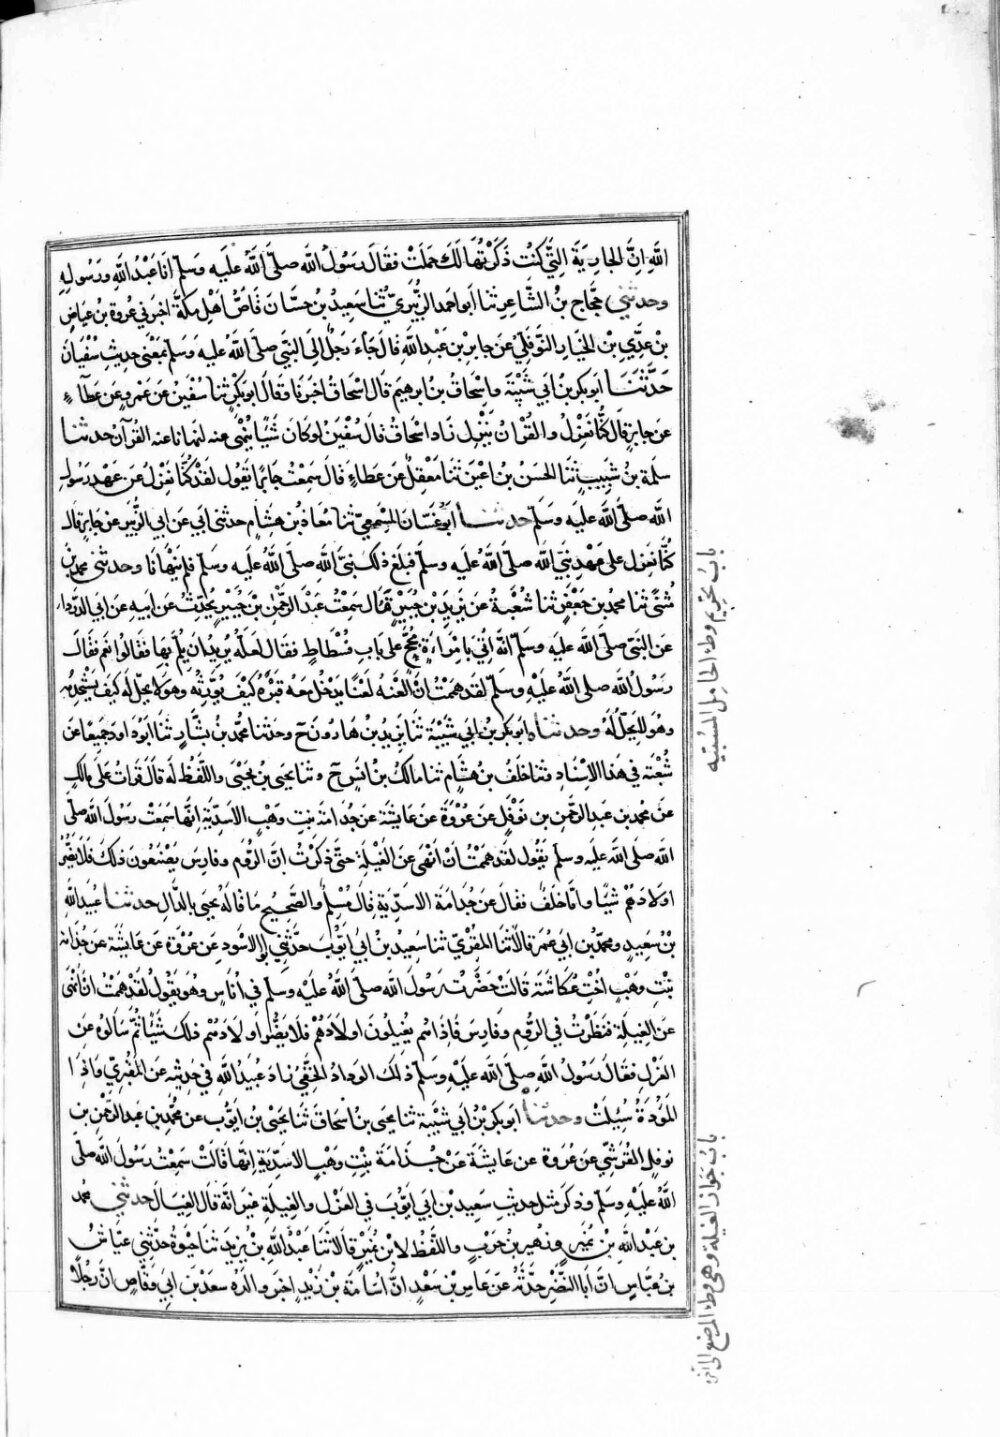 الله ان الجارية التي كنت ذكرتها لك حملت فقال رسول الله صلى الله عليه وسلم انا عبد الله ورسوله
وحدثني حجاج بن الشاعر ثنا ابو احمد الزبيري ثنا سعيد بن حسان قاص اهل مكة اخبرني عروة بن عياض
بن عدي بن الخيار النوفلي عن جابر بن عبد الله قال جاء رجل الى النبي صلى الله عليه وسلم بمعنى حديث سفيان
حدثنا ابو بكر بن ابي شيبة واسحاق بن ابرهيم قال اسحاق اخبرنا وقال ابو بكر ثنا سفين عن عمرو عن عطاء
عن جابر قال كنا نعزل والقران ينزل زاد اسحاق قال سفين لو كان شيئا ينهى عنه لنهانا عنه القرآن حدثنا
سلمة بن شبيب ثنا الحسن بن اعين ثنا معقل عن عطاء قال سمعت جابرا يقول لقد كنا نعزل عن عهد رسول
الله صلى الله عليه وسلم حدثنا ابو غسان المسمعي ثنا معاذ بن هشام حدثني ابي عن ابي الزبير عن جابر قال
كنا نعزل على عهد نبي الله صلى الله عليه وسلم فبلغ ذلك نبي الله صلى الله عليه وسلم فلم ينهانا وحدثني محمد بن
مثنى ثنا محمد بن جعفر ثنا شعبة عن يزيد بن خمير قال سمعت عبد الرحمن بن جبير يحدث عن ابيه عن ابي الدرداء
عن النبي صلى الله عليه وسلم انه اتي بامراءة مجح على باب فسطاط فقال لعله يريد ان يلم بها فقالوا نعم فقال
رسول الله صلى الله عليه وسلم لقد هممت ان العنه لعنا يدخل معه قبره كيف يورثه وهو لا يحل له كيف يستخدمه
وهو لا يحل له وحدثناه ابو بكر بن ابي شيبة ثنا يزيد بن هارون ح وحدثنا محمد بن بشار ثنا ابو داود جميعا عن
شعبة في هذا الاسناد وثنا خلف بن هشام ثنا مالك بن انس ح وثنا يحيى بن يحيى واللفظ له قال قرات على مالك
عن محمد بن عبد الرحمن بن نوفل عن عروة عن عايشة عن جدامة بنت وهب الاسدية انها سمعت رسول الله صلى
الله صلى الله عليه وسلم يقول لقد هممت ان انهى عن الغيلة حتى ذكرت ان الروم وفارس يصنعون ذلك فلا يضر
اولادهم شيئا واما خلف فقال عن جذامة الاسدية قال مسلم والصحيح ما قاله يحيى بالدال حدثنا عبيد الله
بن سعيد ومحمد بن ابي عمر قالا ثنا المقري ثنا سعيد بن ابي ايوب حدثني ابو الاسود عن عروة عن عايشة عن جدامة
بنت وهب اخت عكاشة قالت حضرت رسول الله صلى الله عليه وسلم في اناس وهو يقول لقد هممت ان انهى
عن الغيلة فنظرت في الروم وفارس فاذا هم يغيلون اولادهم فلا يضر اولادهم ذلك شيئا ثم سالوه عن
العزل فقال رسول الله صلى الله عليه وسلم ذلك الواد الخفي زاد عبيد الله في حديثه عن المقري واذا
الموودة سئلت وحدثنا ابو بكر بن ابي شيبة ثنا يحيى بن اسحاق ثنا يحيى بن ايوب عن محمد بن عبد الرحمن بن
نوفل القرشي عن عروة عن عايشة عن جذامة بنت وهب الاسدية انها قالت سمعت رسول الله صلى
الله عليه وسلم وذكر مثل حديث سعيد بن ابي ايوب في العزل والغيلة غير انه قال الغيال حدثني محمد
بن عبد الله بن نمير وزهير بن حرب واللفظ لابن نمير قالا ثنا عبد الله بن يزيد ثنا حيوة حدثني عياش
بن عباس ان ابا النضر حدثه عن عامر بن سعد ان اسامة بن زيد اخبر والده سعد بن ابي وقاص ان رجلا
باب تحريم وطء الحامل المسبية
باب جواز الغيلة وهي وطء المرضع